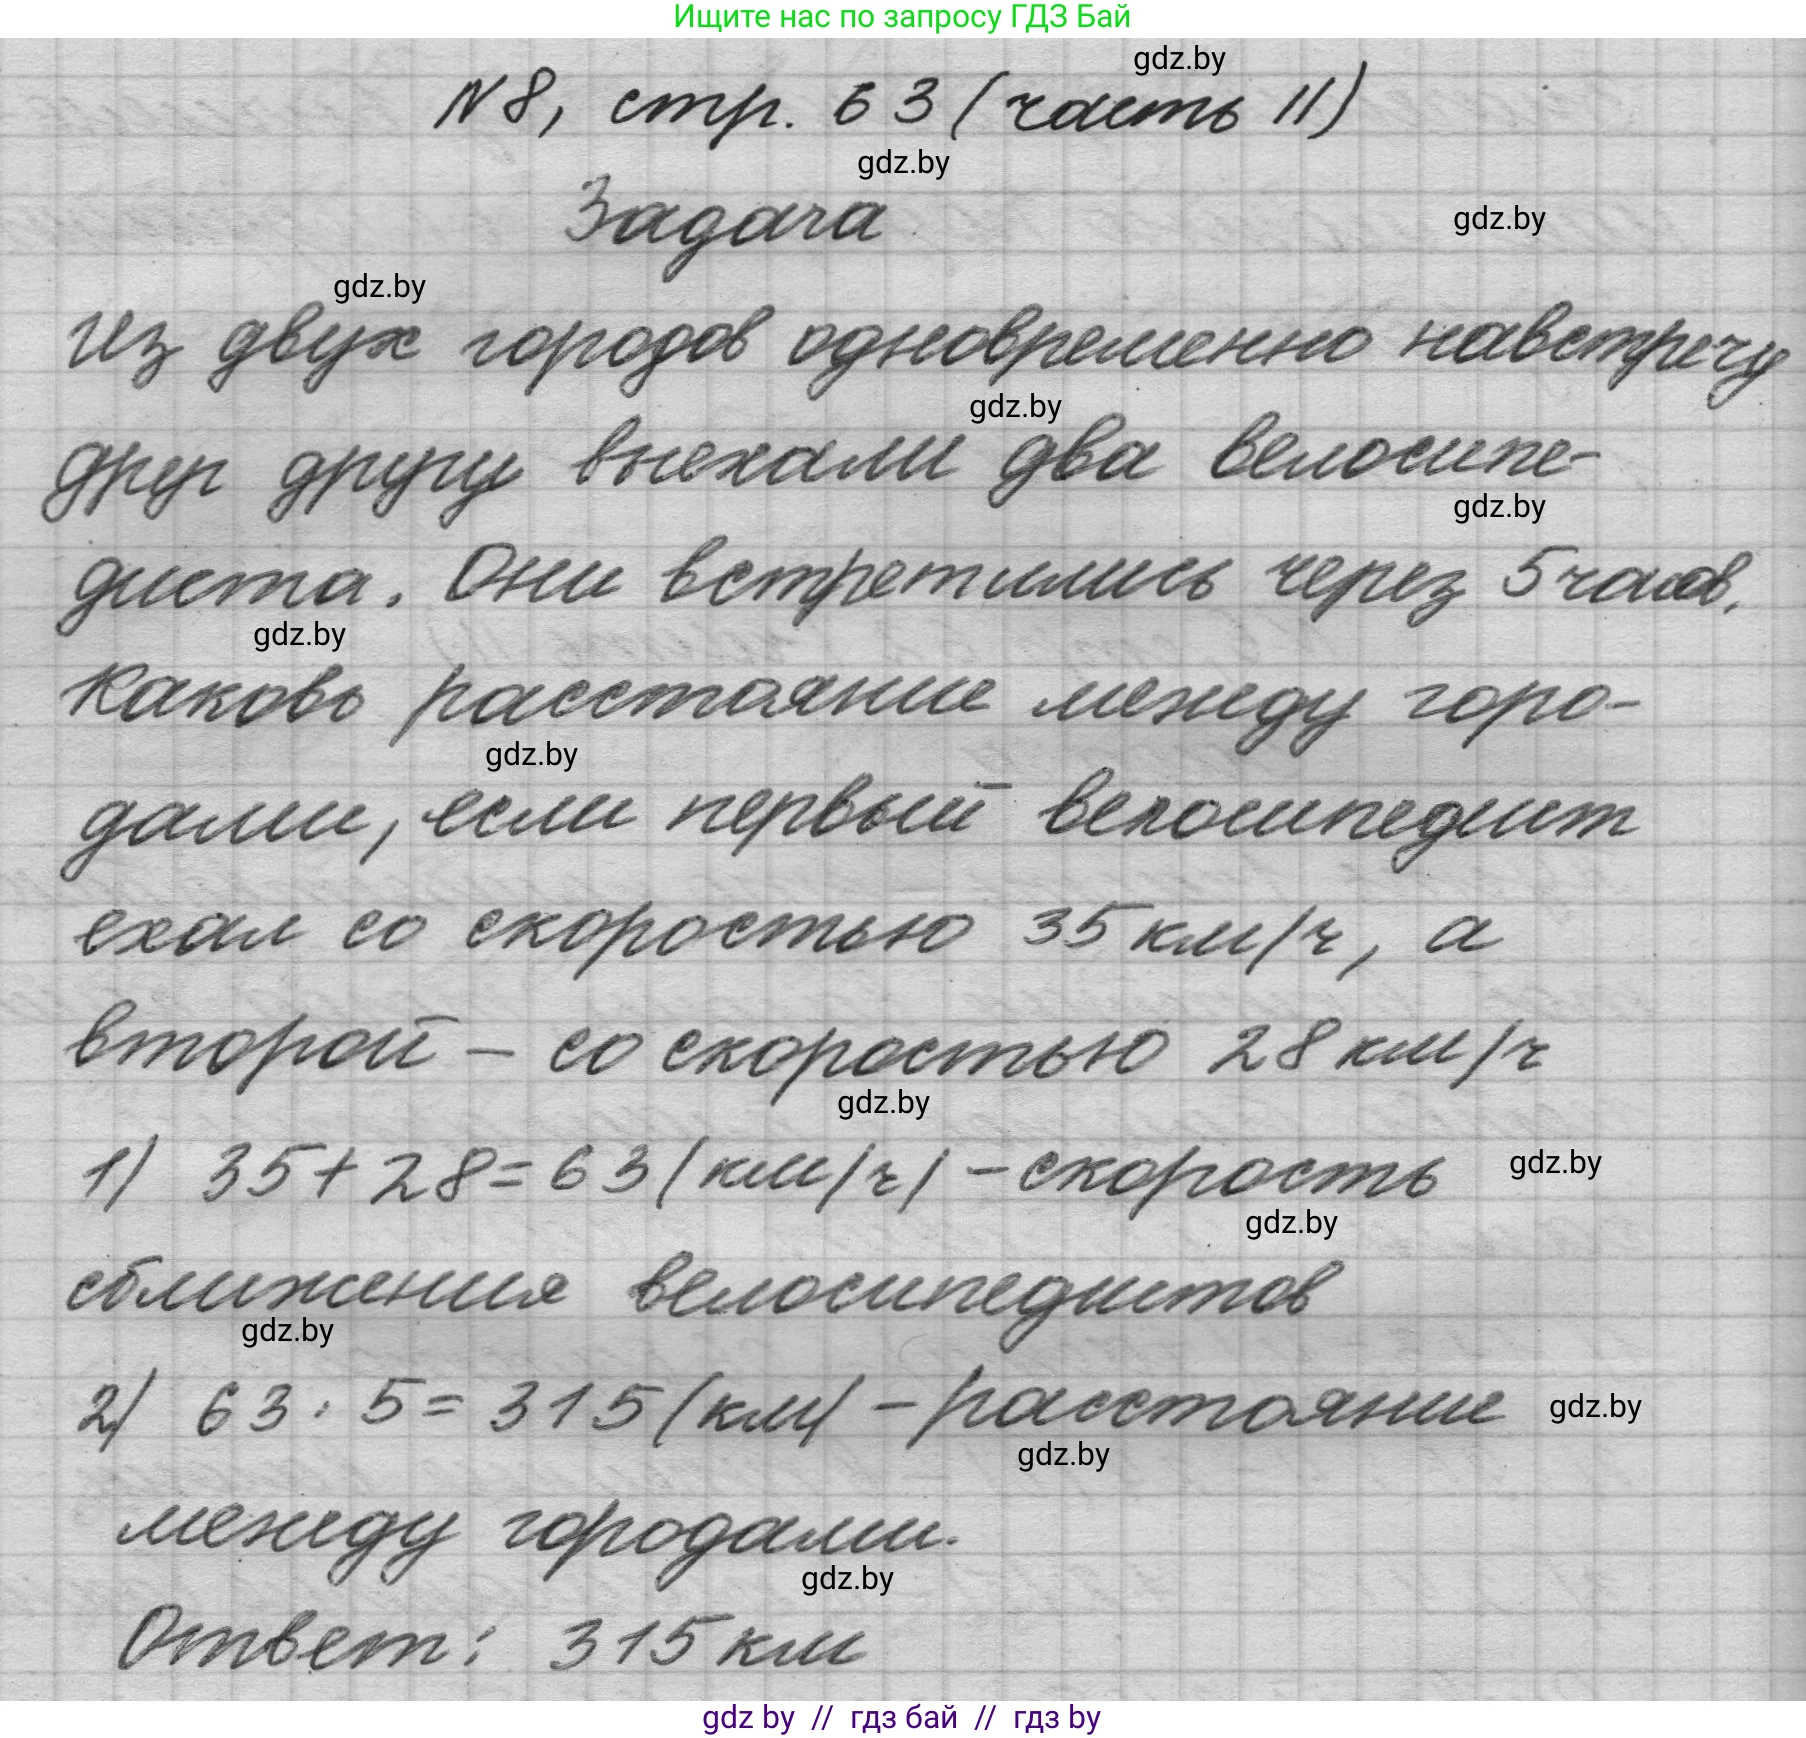 Ищите нас по запросу ГДЗ Бай
gdz.by
N 8, стр. 63 (часть II)
gdz.by
Задача
gdz.by
gdz.by
Из двух городов одновременно навстречу
gdz.by
друг другу выехали два велосипе-
gdz.by
диста. Они встретились через 5 часов.
gdz.by
Каковь расстояние между горо-
gdz.by
дами, если первый велосипедист
ехал со скоростью 35 км/ч, а
второй – со скоростью 28 км/ч
gdz.by
1) 35 + 28 = 63 (км/ч) – скорость
gdz.by
gdz.by
сближения велосипедистов
gdz.by
2) 63 · 5 = 315 (км) – расстояние
gdz.by
gdz.by
между городами.
gdz.by
Ответ: 315 км
gdz by // гдз бай // гдз by